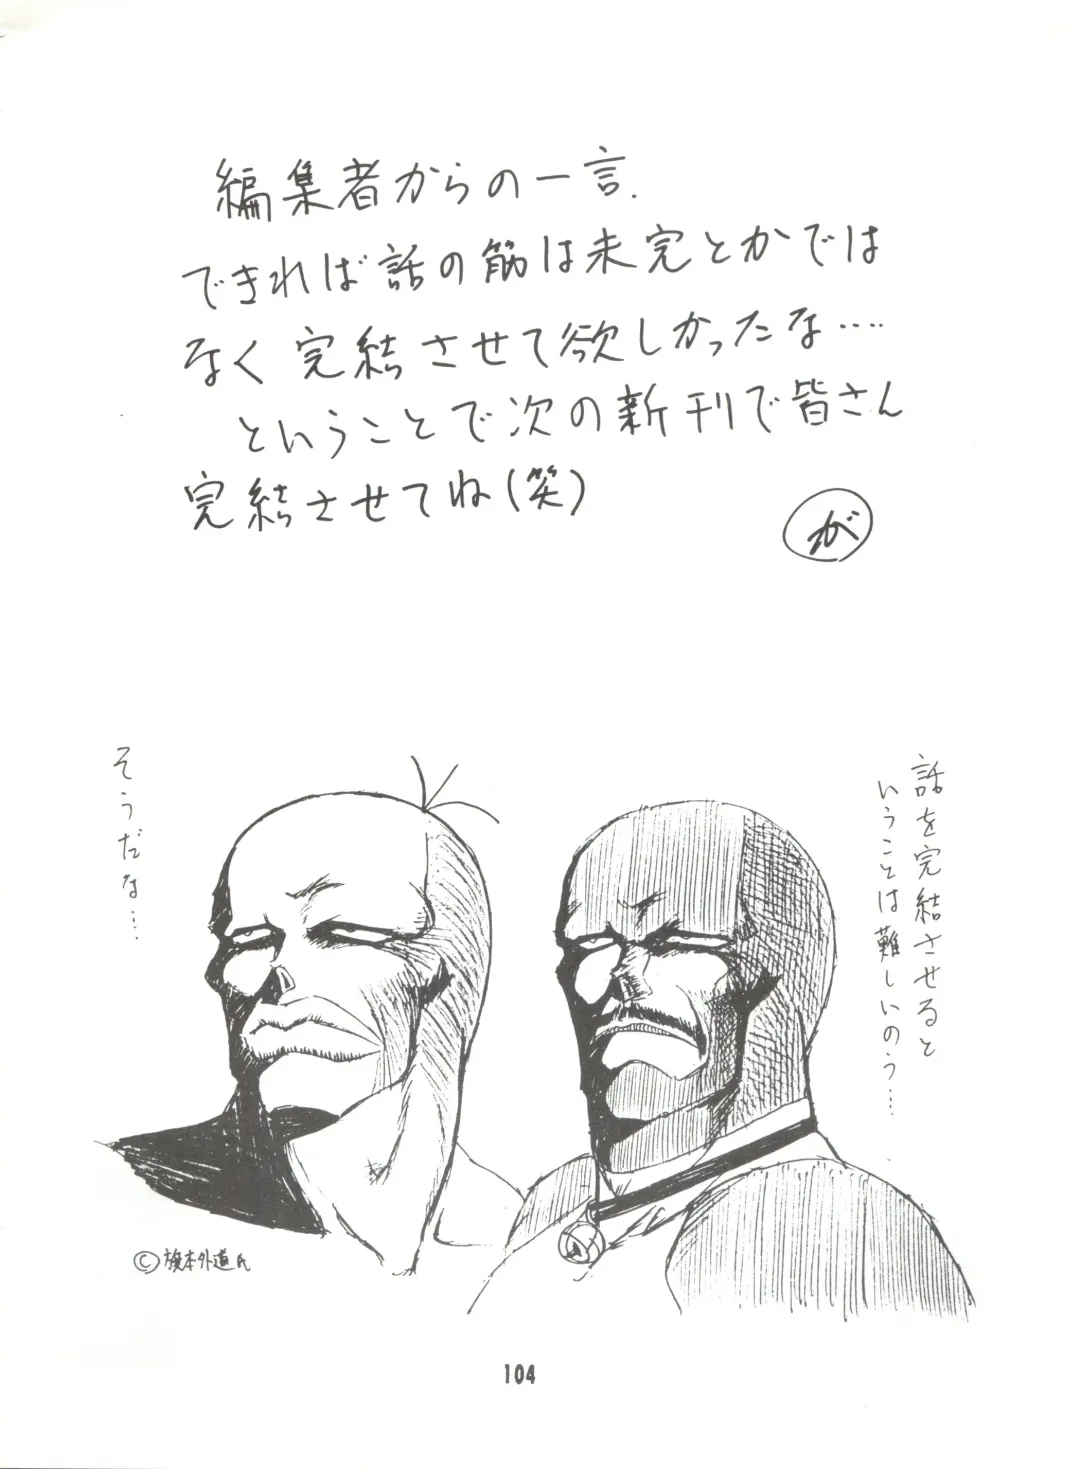 編集者からの一言.
できれば話の筋は未完とかでは
なく完結させて欲しかったな‥‥
ということで次の新刊で皆さん
完結させてね(笑)
が
話を完結させると
いうことは難しいのう…
そうだな…
©旗本外道氏
104